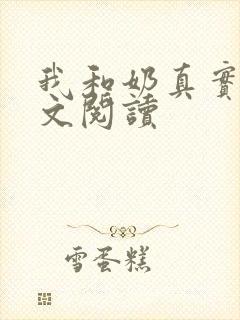 我和奶真實
文閱讀
雪蛋糕